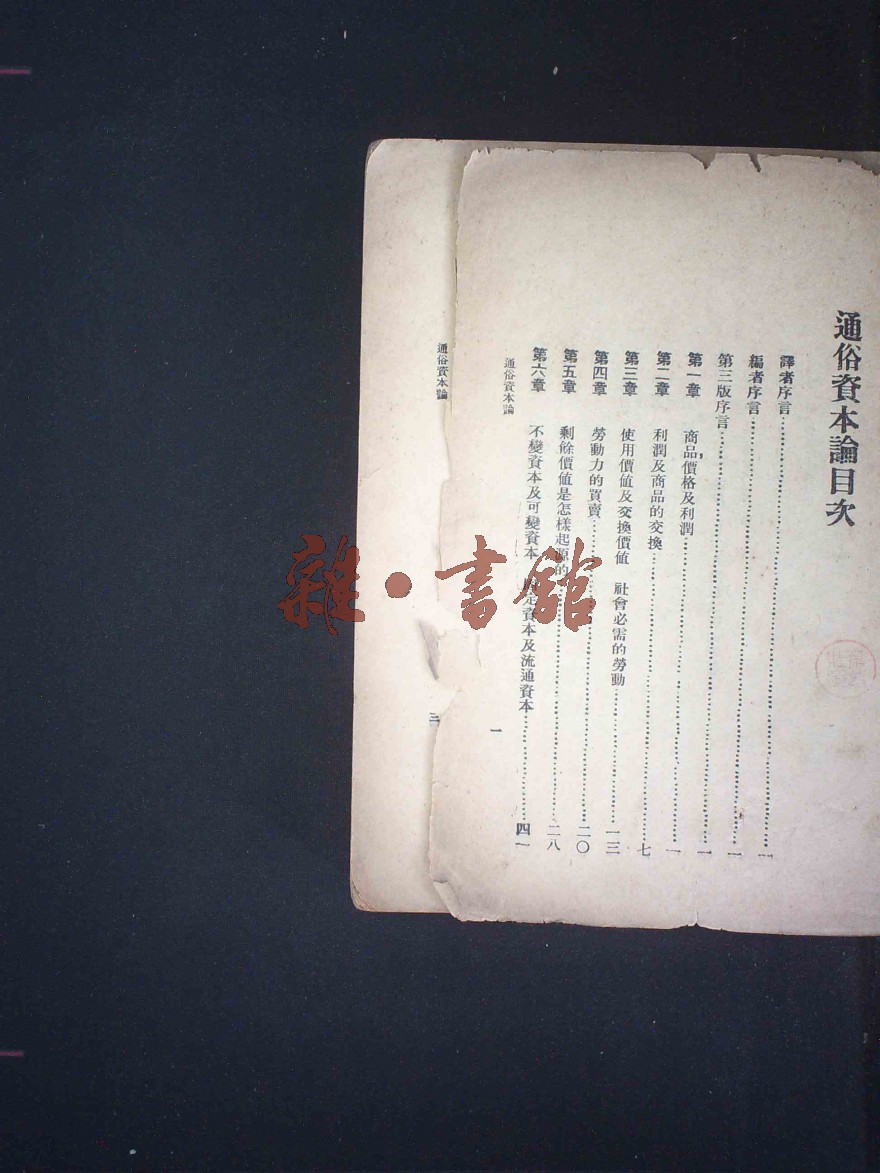 通俗資本論目次
譯者序言……一
編者序言……一
第三版序言……一
第一章 商品,價格及利潤……一
第二章 利潤及商品的交換……七
第三章 使用價值及交換價值 社會必需的勞動……一三
第四章 勞動力的買賣……二〇
第五章 剩餘價值是怎樣起源的……二八
第六章 不變資本及可變資本 定資本及流通資本……四一
通俗資本論
一
通俗資本論
三
雜·書館